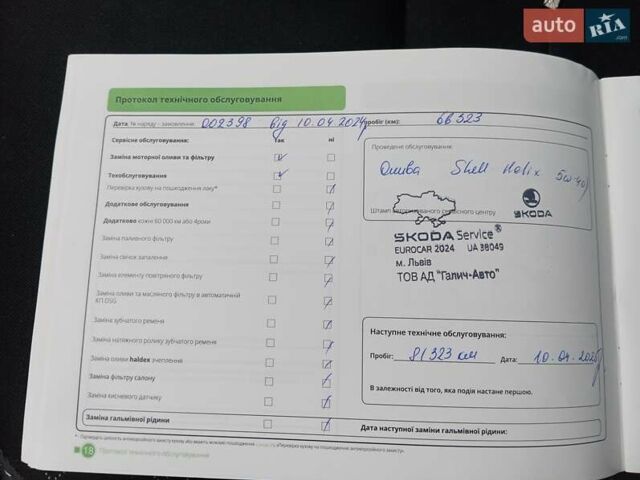 auto RIA.com
Протокол технічного обслуговування
Дата, № наряду - замовлення: 002398 від 10.04.2024р пробіг (км): 66323
Сервісне обслуговування: Так ні
Проведене обслуговування:
Заміна моторної оливи та фільтру
Олива Shell Helix 5w-40
Техобслуговування
Перевірка кузову на пошкодження лаку*
Додаткове обслуговування
Додатково кожні 60 000 км або 4роки
Штамп авторизованого сервісного центру
SKODA
Заміна паливного фільтру
ŠKODA Service®
EUROCAR 2024 UA 38049
Заміна свічок запалення
м. Львів
Заміна елементу повітряного фільтру
ТОВ АД "Галич-Авто"
Заміна оливи та масляного фільтру в автоматичній КП DSG
Заміна зубчатого ременя
Заміна натяжного ролику зубчатого ременя
Наступне технічне обслуговування:
Заміна оливи haldex зчеплення
Пробіг: 81323 км Дата: 10.04.2025р
Заміна фільтру салону
В залежності від того, яка подія настане першою.
Заміна кисневого датчику
Заміна гальмівної рідини
Дата наступної заміни гальмівної рідини:
18 Протокол технічного обслуговування